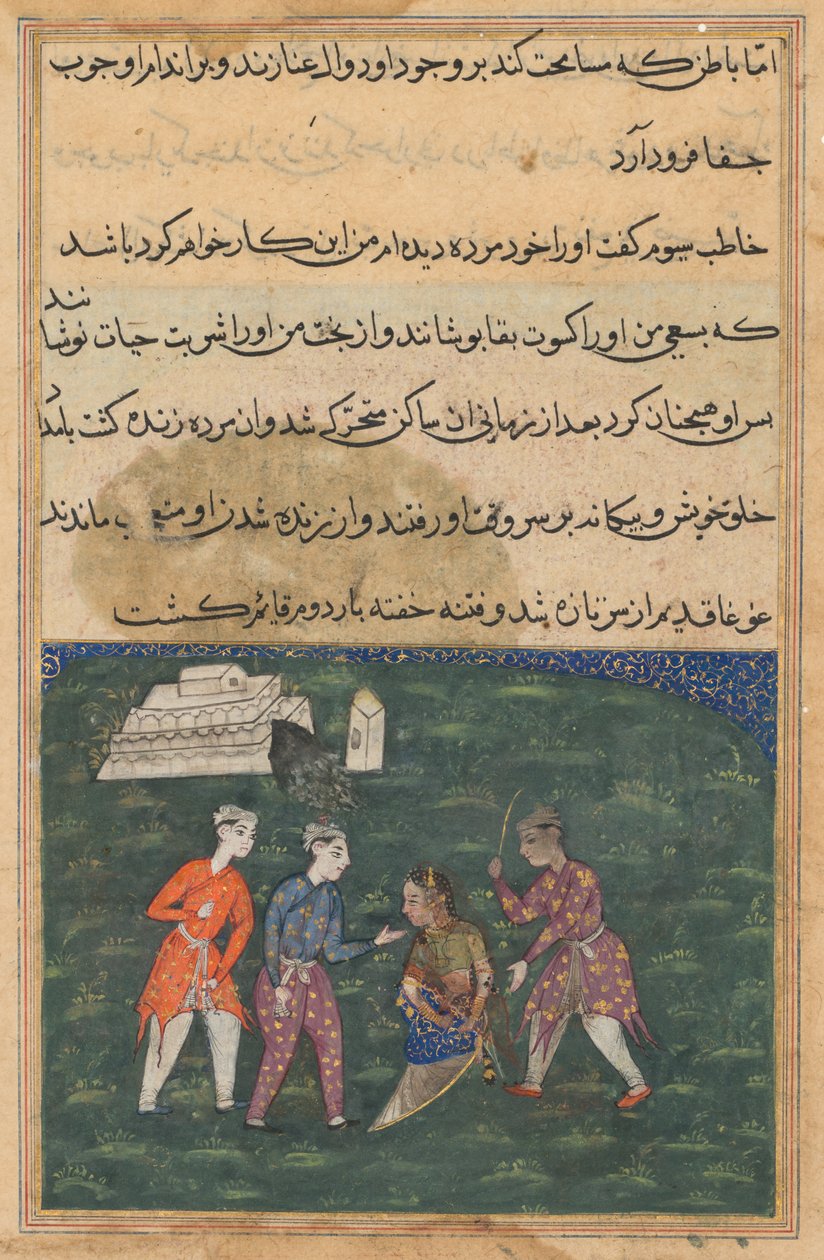 امّا باطن که مسامحت کند بر وجود او دوال عنا زند و بر اندام او چوب
جفا فرود آرد
خاطب سیوم گفت او را خود مرده دیده ام من این کار خواهم کرد باشد
که بسعی من او را کسوت بقا بوشانند و از بخت من او را شربت حیات نوشانند
بس او همچنان کرد بعد از زمانی ان ساکن متحرّک شد و ان مرده زنده کشت بامداد
خلق خویش و بیکانه بر سر وقت او رفتند و از زنده شدن او متعجب ماندند
غوغا قدیم از سر تازه شد و فتنه خفته بار دوم قایم کشت